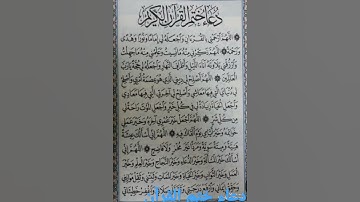 دُعَاءُ خَتْمِ الْقُرْآنِ الْكَرِيمِ
❁ اللَّهُمَّ ارْحَمْنِي بِالْقُرْءَانِ وَاجْعَلْهُ لِي إِمَامًا وَنُورًا وَهُدًى
وَرَحْمَةً ❁ اللَّهُمَّ ذَكِّرْنِي مِنْهُ مَا نَسِيتُ وَعَلِّمْنِي مِنْهُ مَا جَهِلْتُ
وَارْزُقْنِي تِلَاوَتَهُ آنَاءَ اللَّيْلِ وَأَطْرَافَ النَّهَارِ وَاجْعَلْهُ لِي حُجَّةً يَارَبَّ
الْعَالَمِينَ ❁ اللَّهُمَّ أَصْلِحْ لِي دِينِي الَّذِي هُوَ عِصْمَةُ أَمْرِي وَأَصْلِحْ لِي
دُنْيَايَ الَّتِي فِيهَا مَعَاشِي وَأَصْلِحْ لِي آخِرَتِي الَّتِي فِيهَا مَعَادِي
وَاجْعَلِ الْحَيَاةَ زِيَادَةً لِي فِي كُلِّ خَيْرٍ وَاجْعَلِ الْمَوْتَ رَاحَةً لِي
مِنْ كُلِّ شَرٍّ ❁ اللَّهُمَّ اجْعَلْ خَيْرَ عُمْرِي آخِرَهُ وَخَيْرَ عَمَلِي
خَوَاتِمَهُ وَخَيْرَ أَيَّامِي يَوْمَ أَلْقَاكَ فِيهِ ❁ اللَّهُمَّ إِنِّي أَسْأَلُكَ عِيشَةً
هَنِيَّةً وَمِيتَةً سَوِيَّةً وَمَرَدًّا غَيْرَ مُخْزٍ وَلَا فَاضِحٍ ❁ اللَّهُمَّ إِنِّي
أَسْأَلُكَ خَيْرَ الْمَسْأَلَةِ وَخَيْرَ الدُّعَاءِ وَخَيْرَ النَّجَاحِ وَخَيْرَ الْعِلْمِ
وَخَيْرَ الْعَمَلِ وَخَيْرَ الثَّوَابِ وَخَيْرَ الْحَيَاةِ وَخَيْرَ الْمَمَاتِ وَثَبِّتْنِي وَثَقِّلْ مَوَازِينِي
دعاء ختم القرآن